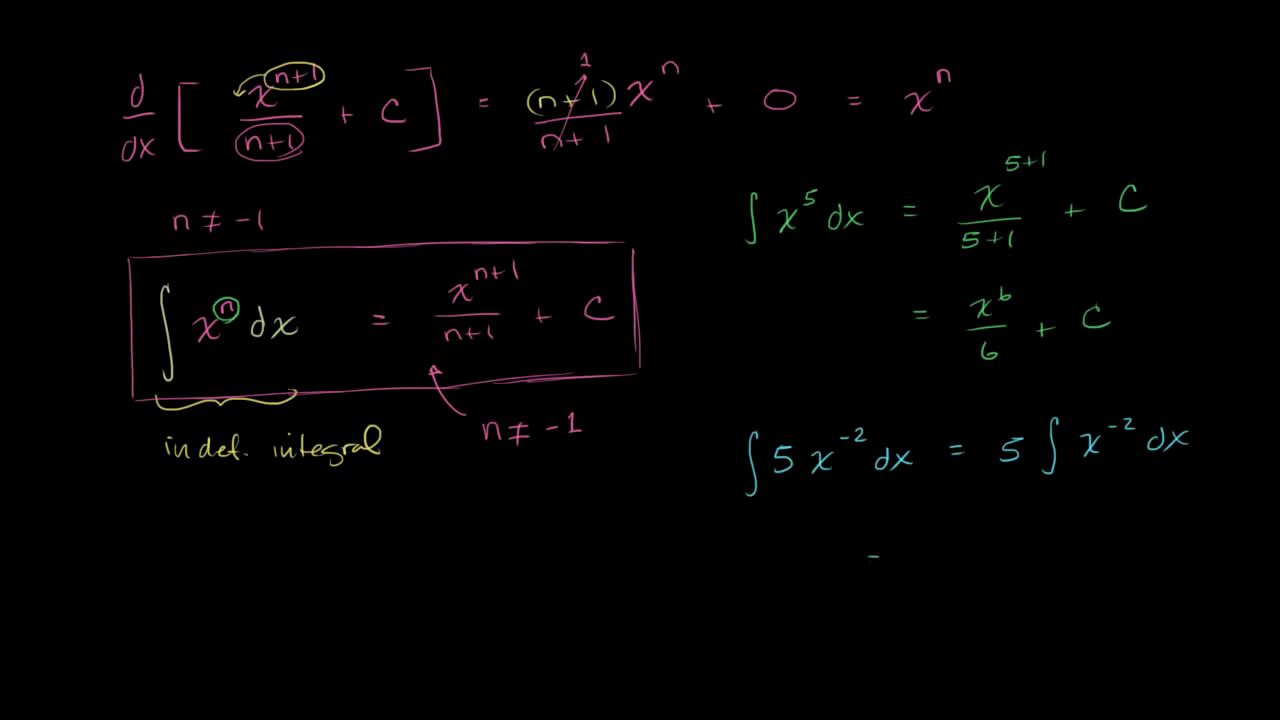 d/dx [ x^(n+1)/(n+1) + C ] = (n+1)x^n/(n+1) 1 + 0 = x^n
n ≠ -1
∫ x^n dx = x^(n+1)/(n+1) + C
n ≠ -1
indef. integral
∫ x^5 dx = x^(5+1)/(5+1) + C
= x^6/6 + C
∫ 5 x^-2 dx = 5 ∫ x^-2 dx